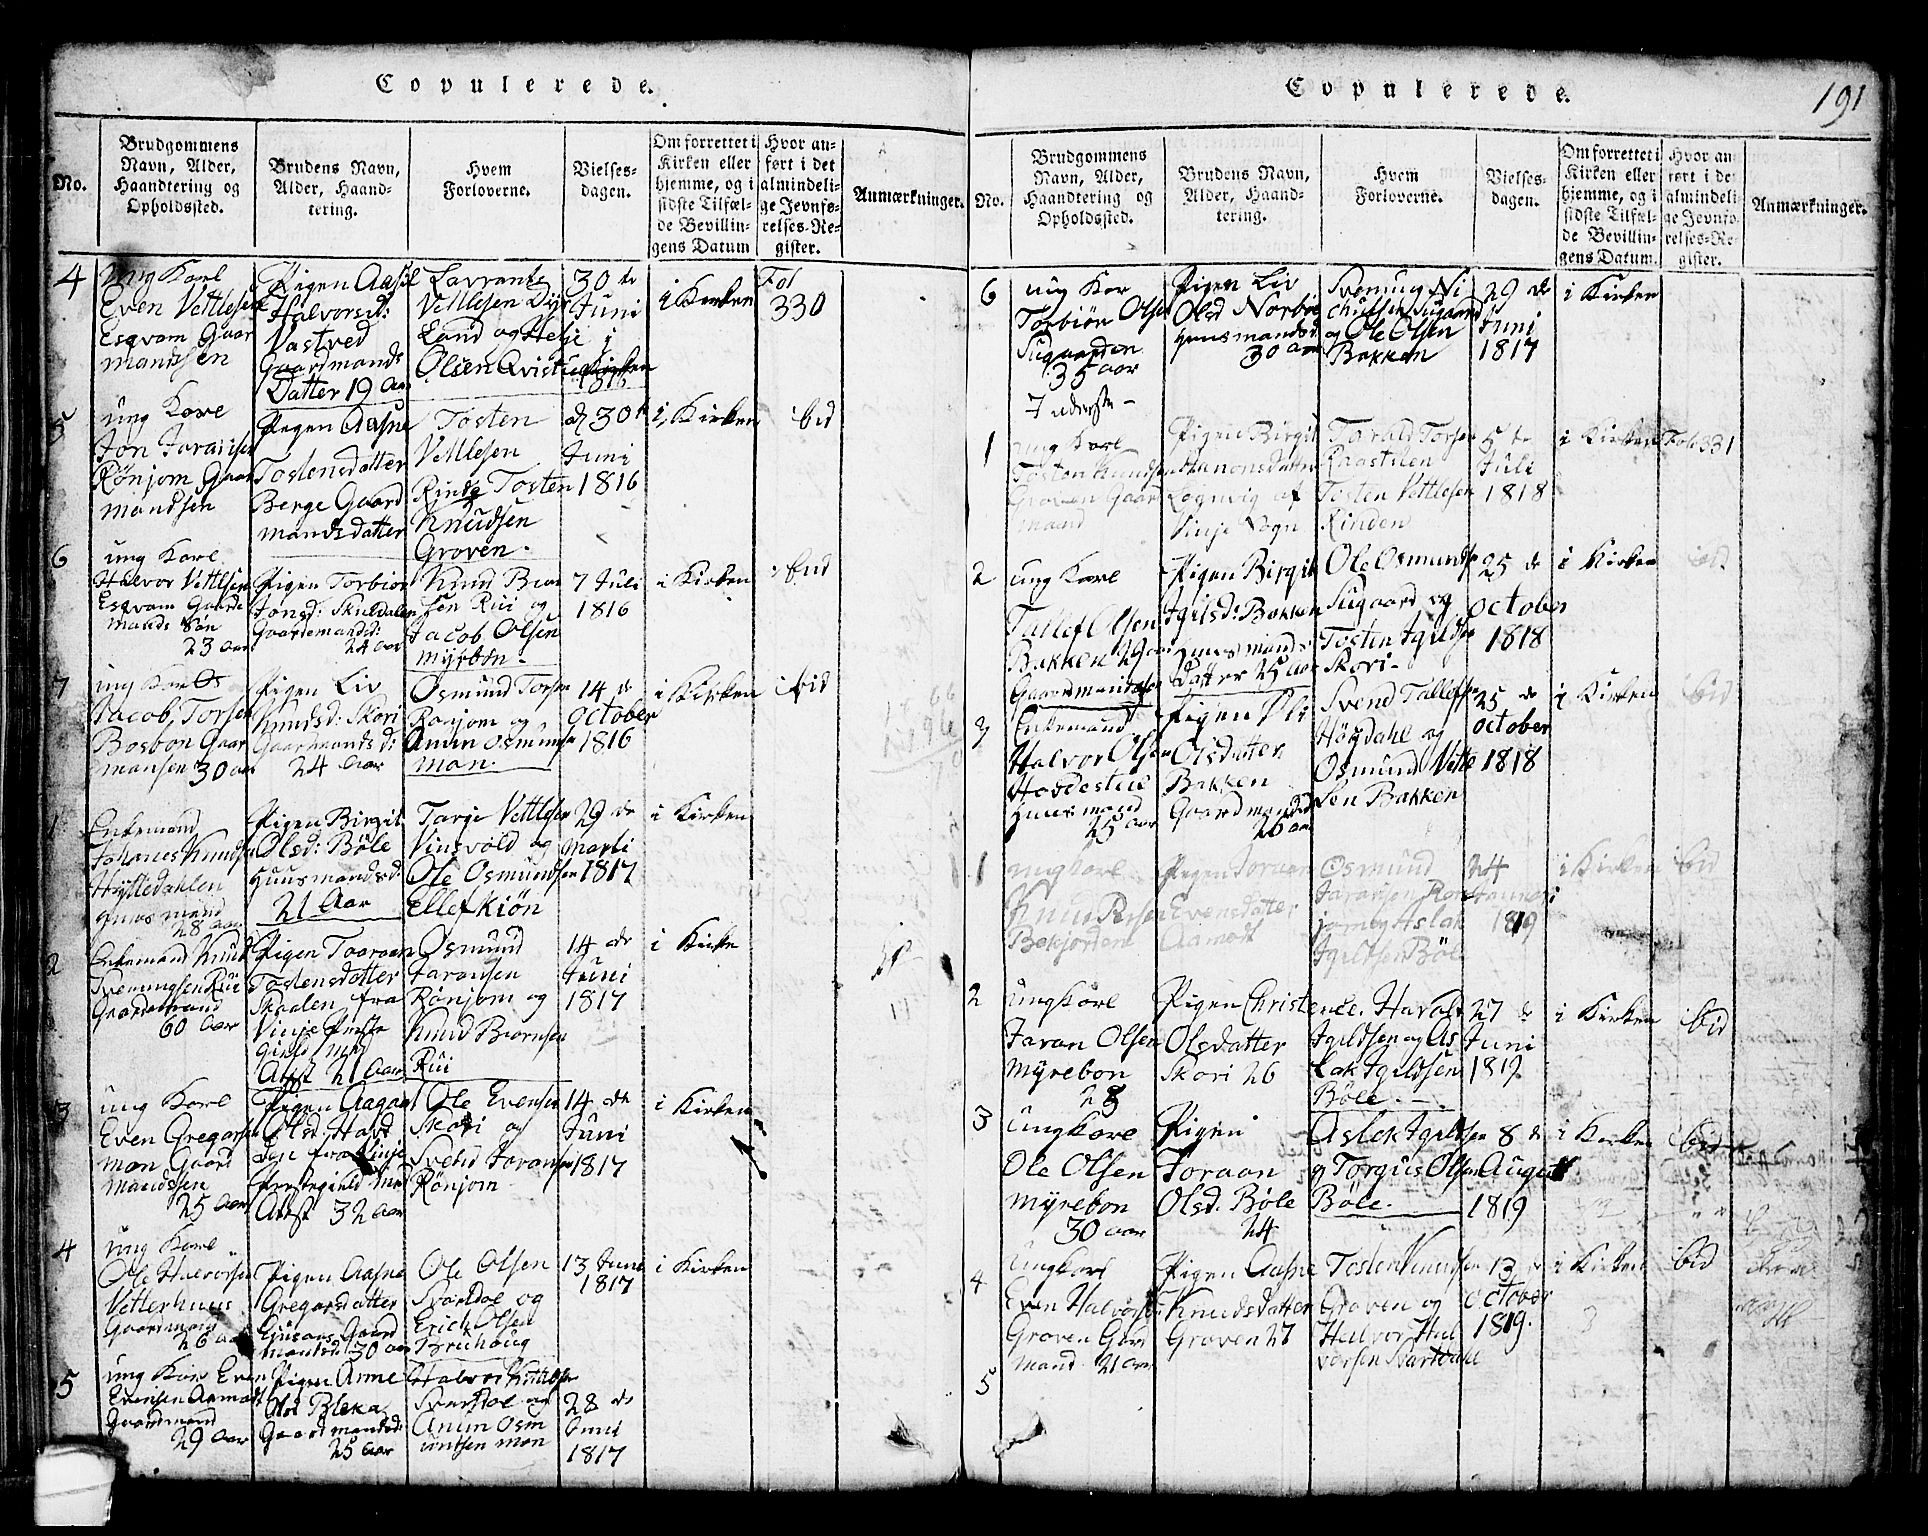 Copulerede.
No.
Brudgommens Navn, Alder, Haandtering og Opholdssted.
Brudens Navn, Alder, Haandtering.
Hvem Forloverne.
Vielsesdagen.
Om forrettet i Kirken eller hjemme, og i sidste Tilfælde Bevillingens Datum
Hvor anført i det almindelige Jevnførelses-Register.
Anmærkninger.
4
ung Karl
Even Vettlesen
Esqvam Gaar
mandsen
Pigen Aasil
Halvorsd:
Vastved
Gaardmands
Datter 19 Aar
Lavrants
Vettlesen Dyr
Land og Helje
Olsen Qvist
30 te
Juni
i Kirken
Fol
330
5
ung Karl
Jon Jaransen
Rönjom Gaar
mandsen
Pigen Aasne
Tostensdatter
Berge Gaard
mandsdatter
Tosten
Vettlesen
Rinde Tosten
Knudsen
Groven.
d 30 t
Juni
1816
i Kirken
ibid
6
ung Karl
Halvor Vettlsen
Esqvam Gaarde
mands Søn
23 aar
Pigen Torbior
Jonsd: Skuldalen
Gaardemandsd:
24 aar
Knud Biørn
sen Rui og
Jacob Olsen
Myrbön.
7 Juli
1816
i Kirken
ibid
7
ung Kar
Jacob Torsen
Bosbon Gaar
mansen 30 aar
Pigen Liv
Knudsd: Skori
Gaarmandsd:
24 Aar
Osmund Torsen
Ronjom og
Anun Osmunsen
Man.
14 de
October
1816
i Kirken
ibid
1
Enkemand
Johanes Knudsen
Hylledahlen
Huusmand
28 aar
Pigen Birgit
Olsd: Böle
Huusmandsd:
21 Aar
Targe Vettlesen
Vinsvold og
Ole Osmundsen
Ellefkiön
29 de
Marti
1817
i Kirken
2
Enkemand Knut
Sveningsen Rui
Gaardemand
60 Aar
Pigen Taaraan
Tostensdatter
Skaalen, fra
Vinje Preste
gield med
Attst 21 Aar
Osmund
Jaransen
Rönjom og
Knud Biornsen
Rui
14 de
Juni
1817
i Kirke
3
ung Karl
Even Gregarsen
Man Gaard
mandssen
25 Aar
Pigen Aagaat
Olsd: Havd
fra Vinje
Prestegield med
Attst 32 Aar
Ole Evensen
Skori og
Svend Jaransen
Rönjom
14 de
Juni
1817
i Kirken
4
ung Karl
Ole Halvorsen
Vetterhuus
Gaardmand
26 aar
Pigen Aasne
Gregarsdatter
Gaard
mandsd 30 aar
Ole Olsen
Svartdal og
Erich Olsen
Bruhaug
13 Juni
1817
i Kirken
5
ung Karl Even
Evensen Aamodt
Gaardmand
29 Aar
Pigen Anne
Olsd Bleka
Gaardmandsd:
25 Aar
Halvor Vettlesen
Svartdal og
Anun Osm
undsen man
28 de
Juni
1817
Copulerede.
191
No.
Brudgommens Navn, Alder, Haandtering og Opholdssted.
Brudens Navn, Alder, Haandtering.
Hvem Forloverne.
Vielsesdagen.
Om forrettet i Kirken eller hjemme, og i sidste Tilfælde Bevillingens Datum.
Hvor anført i det almindelige Jevnførelses-Register.
Anmærkninger.
6
ung Kar
Torbiön Olsen
Sugaarden
35 aar
Pigen Liv
Olsd Norböe
Huusmandsd
30 aar
Svenung Ni
Sugaard
og Ole Olsen
Bakken
29 de
Juni
1817
i Kirken
1
ung Karl
Tosten Knudsen
Groven Gaar
mand
Pigen Birgit
Lognvig af
Vinje Sogn
Tarald Torsen
Raastolen
Tosten Vettlesen
Rinden
5 te
Juli
1818
i Kirken
Fol 331
2
ung Karl
Tallef Olsen
Bakken 29 aar
Gaardmandsøn
Pigen Birgit
Igilsd: Bakken
Huusmands
Datter 25 aar
Ole Osmundsen
Sugaard og
Tosten Igildsen
Skori
25 de
October
1818
i Kirken
ibid
3
Enkemand
Halvor Olsen
Huusmand
25 aar
Pigen
Olsdatter
Bakken
Gaardmandsd
26 aar
Svend Tallefsen
Högdahl og
Osmund Vette
sen Bakken
25 de
October
1818
i Kirken
ibid
1
ung karl
Bekjorden
Pigen Joraan
Evensdatter
Aamodt
Osmund
Jaransen Ron
jom og Aslak
Igildsen Böle
24
Januari
1819
i Kirken
ibid
2
Ungkarl
Jaran Olsen
Myrebon
28
Pigen Christence.
Olsdatter
Skori 26
Harald
Igildsen og As
lak Igildsen
Böle.
27 de
Juni
1819
i Kirken
ibid
3
Ungkarl
Ole Olsen
Myrebon
30 aar
Pigen
Joraan
Olsd. Böle
24
Aslak Igildsen
og Torgus Olsen
Böle.
8 de
August
1819
i Kirken
ibid
4
Ungkarl
Even Halvorsen
Groven Gaar
mand 21 aar
Pigen Aasne
Knudsdatter
Groven 27
Tosten Knudsen
Groven og
Halvor Hal
vorsen Svartdahl
13 de
October
1819.
i Kirken
ibid
5